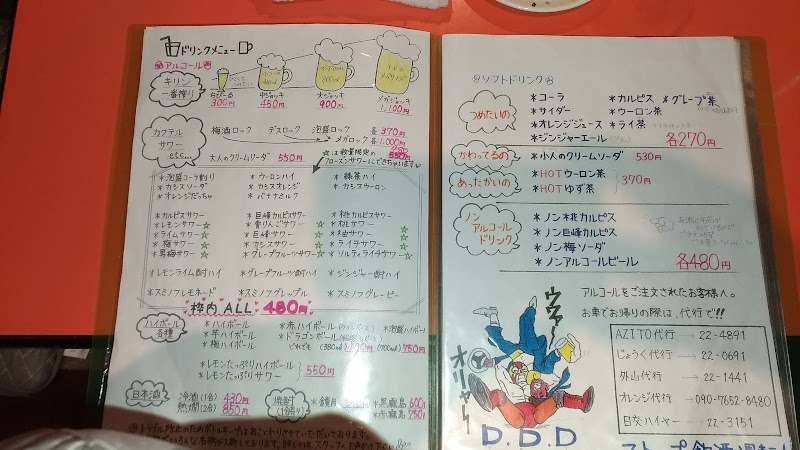 ドリンクメニュー
アルコール
キリン
一番搾り
300円
中ジョッキ
450円
大ジョッキ
800ml
900円
メガジョッキ
1,100円
カクテル
サワー
etc...
梅酒ロック デスロック 泡盛ロック 各370円
メガロック 各1,000円
大人のクリームソーダ 550円
☆は数量限定の
フローズンサワーにできちゃいます
*泡盛コーラ割り *ウーロンハイ *緑茶ハイ
*カシスソーダ *カシスオレンジ *カシスウーロン
*オレンジだっちゃ *バナナミルク
*カルピスサワー *巨峰カルピスサワー *桃カルピスサワー
*レモンサワー☆ *青りんごサワー☆ *桃サワー☆
*ライムサワー☆ *巨峰サワー☆ *柚サワー☆
*梅サワー☆ *カシスサワー☆ *ライチサワー☆
*男梅サワー☆ *グレープフルーツサワー☆ *ソルティライチサワー☆
*レモンライム酎ハイ *グレープフルーツ酎ハイ *ジンジャー酎ハイ
*スミノフレモネード *スミノフグレップル *スミノフグレーピー
枠内 ALL 480円
ハイボール
各種
*ハイボール *赤ハイボール *泡盛ハイボール
*芋ハイボール *ドラゴンボール
*梅ハイボール どれでも (380ml) (700ml) 750円
*レモンたっぷりハイボール
*レモンたっぷりサワー
550円
日本酒
冷酒(1合) 430円
熱燗(2合) 850円
焼酎
(1合割り)
*鏡月
*黒霧島 600円
*赤霧島 750円
ソフトドリンク
つめたいの
*コーラ *カルピス *グレープ茶
*サイダー *ウーロン茶
*オレンジジュース *ライ茶
*ジンジャーエール
各270円
かわってるの
*小人のクリームソーダ 530円
あったかいの
*HOTウーロン茶
*HOTゆず茶
370円
ノン
アルコール
ドリンク
*ノン桃カルピス
*ノン巨峰カルピス
*ノン梅ソーダ
*ノンアルコールビール
各480円
アルコールをご注文されたお客様へ。
お車でお帰りの際は、代行で!!
AZITO代行 → 22-4891
じょうく代行 → 22-0691
外山代行 → 22-1441
オレンジ代行 → 090-7652-8480
日交ハイヤー → 22-3151
ウワァー
オリャー
D.D.D